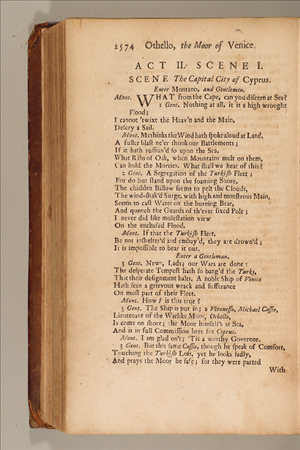 2574 Othello, the Moor of Venice.
ACT II. SCENE I.
SCENE The Capital City of Cyprus.
Enter Montano, and Gentlemen.
Mont. WHAT from the Cape, can you discern at Sea?
1 Gent. Nothing at all, it is a high wrought
Flood;
I cannot 'twixt the Heav'n and the Main,
Descry a Sail.
Mont. Methinks the Wind hath spoke aloud at Land,
A fuller blast ne'er shook our Battlements;
If it hath ruffian'd so upon the Sea,
What Ribs of Oak, when Mountains melt on them,
Can hold the Morties. What shall we hear of this?
2 Gent. A Segregation of the Turkish Fleet;
For do but stand upon the foaming Shore,
The chidden Billow seems to pelt the Clouds,
The wind-shak'd Surge, with high and monstrous Main,
Seems to cast Water on the burning Bear,
And quench the Guards of th'ever fixed Pole;
I never did like molestation view
On the enchafed Flood.
Mont. If that the Turkish Fleet
Be not inshelter'd and embay'd, they are drown'd;
It is impossible to bear it out.
Enter a Gentleman.
3 Gent. News, Lads; our Wars are done:
The desperate Tempest hath so bang'd the Turks,
That their designment halts. A noble Ship of Venice
Hath seen a grievous wrack and sufferance
On most part of their Fleet.
Mont. How! is this true?
3 Gent. The Ship is put in; a Veronessa, Michael Cassio,
Lieutenant of the Warlike Moor, Othello,
Is come on shore; the Moor himself's at Sea,
And is in full Commission here for Cyprus.
Mont. I am glad on't; 'Tis a worthy Governor.
3 Gent. But this same Cassio, though he speak of Comfort,
Touching the Turkish Loss, yet he looks sadly,
And prays the Moor be safe; for they were parted
With